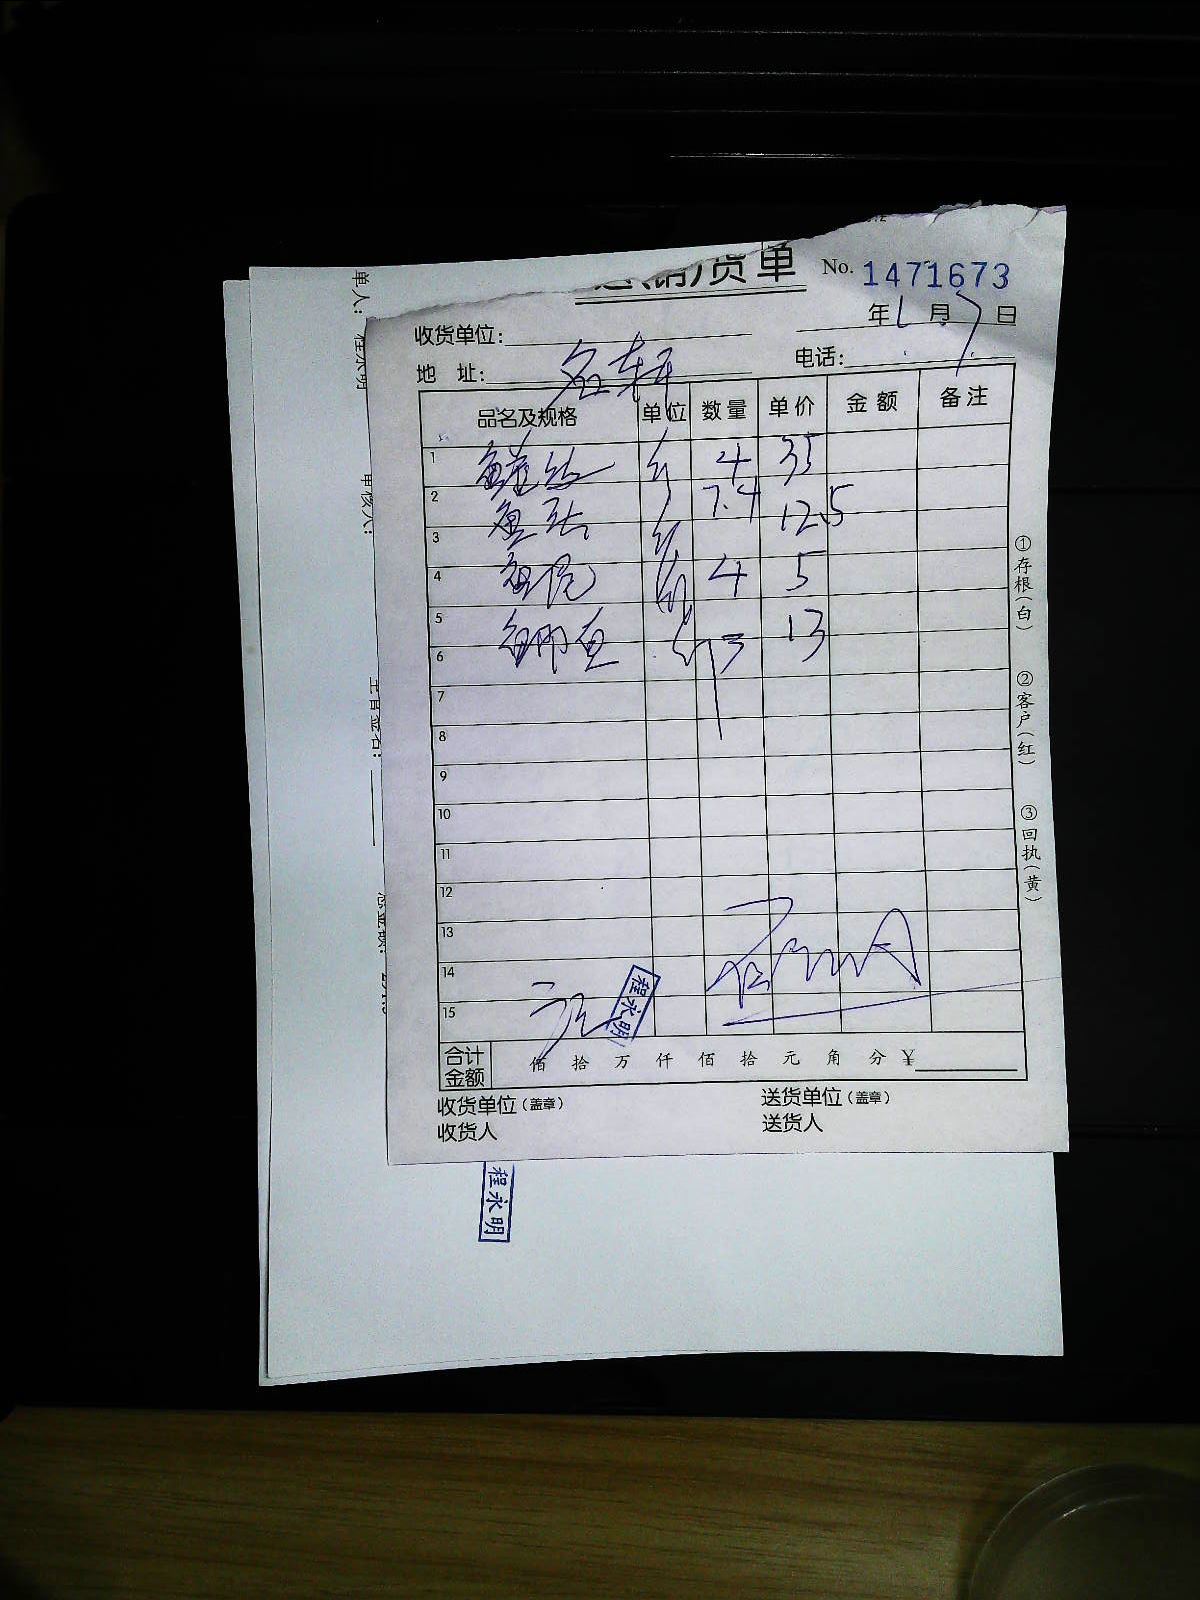 货单 No. 1471673
年 1 月 7 日
收货单位:
地 址: 名轩 电话:
品名及规格 单位 数量 单价 金额 备注
1 斤 4 35
2 鱼头 7.4 12.5
3 斤
4 斤 4 5
5 13
6 鱼 斤 13
7
8
9
10
11
12
13
14
15
程永明
合计金额 佰 拾 万 仟 佰 拾 元 角 分 ¥
收货单位(盖章) 送货单位(盖章)
收货人 送货人
①存根(白)
②客户(红)
③回执(黄)
单人: 程永明
审核人:
主管签名:
总金额:
程永明